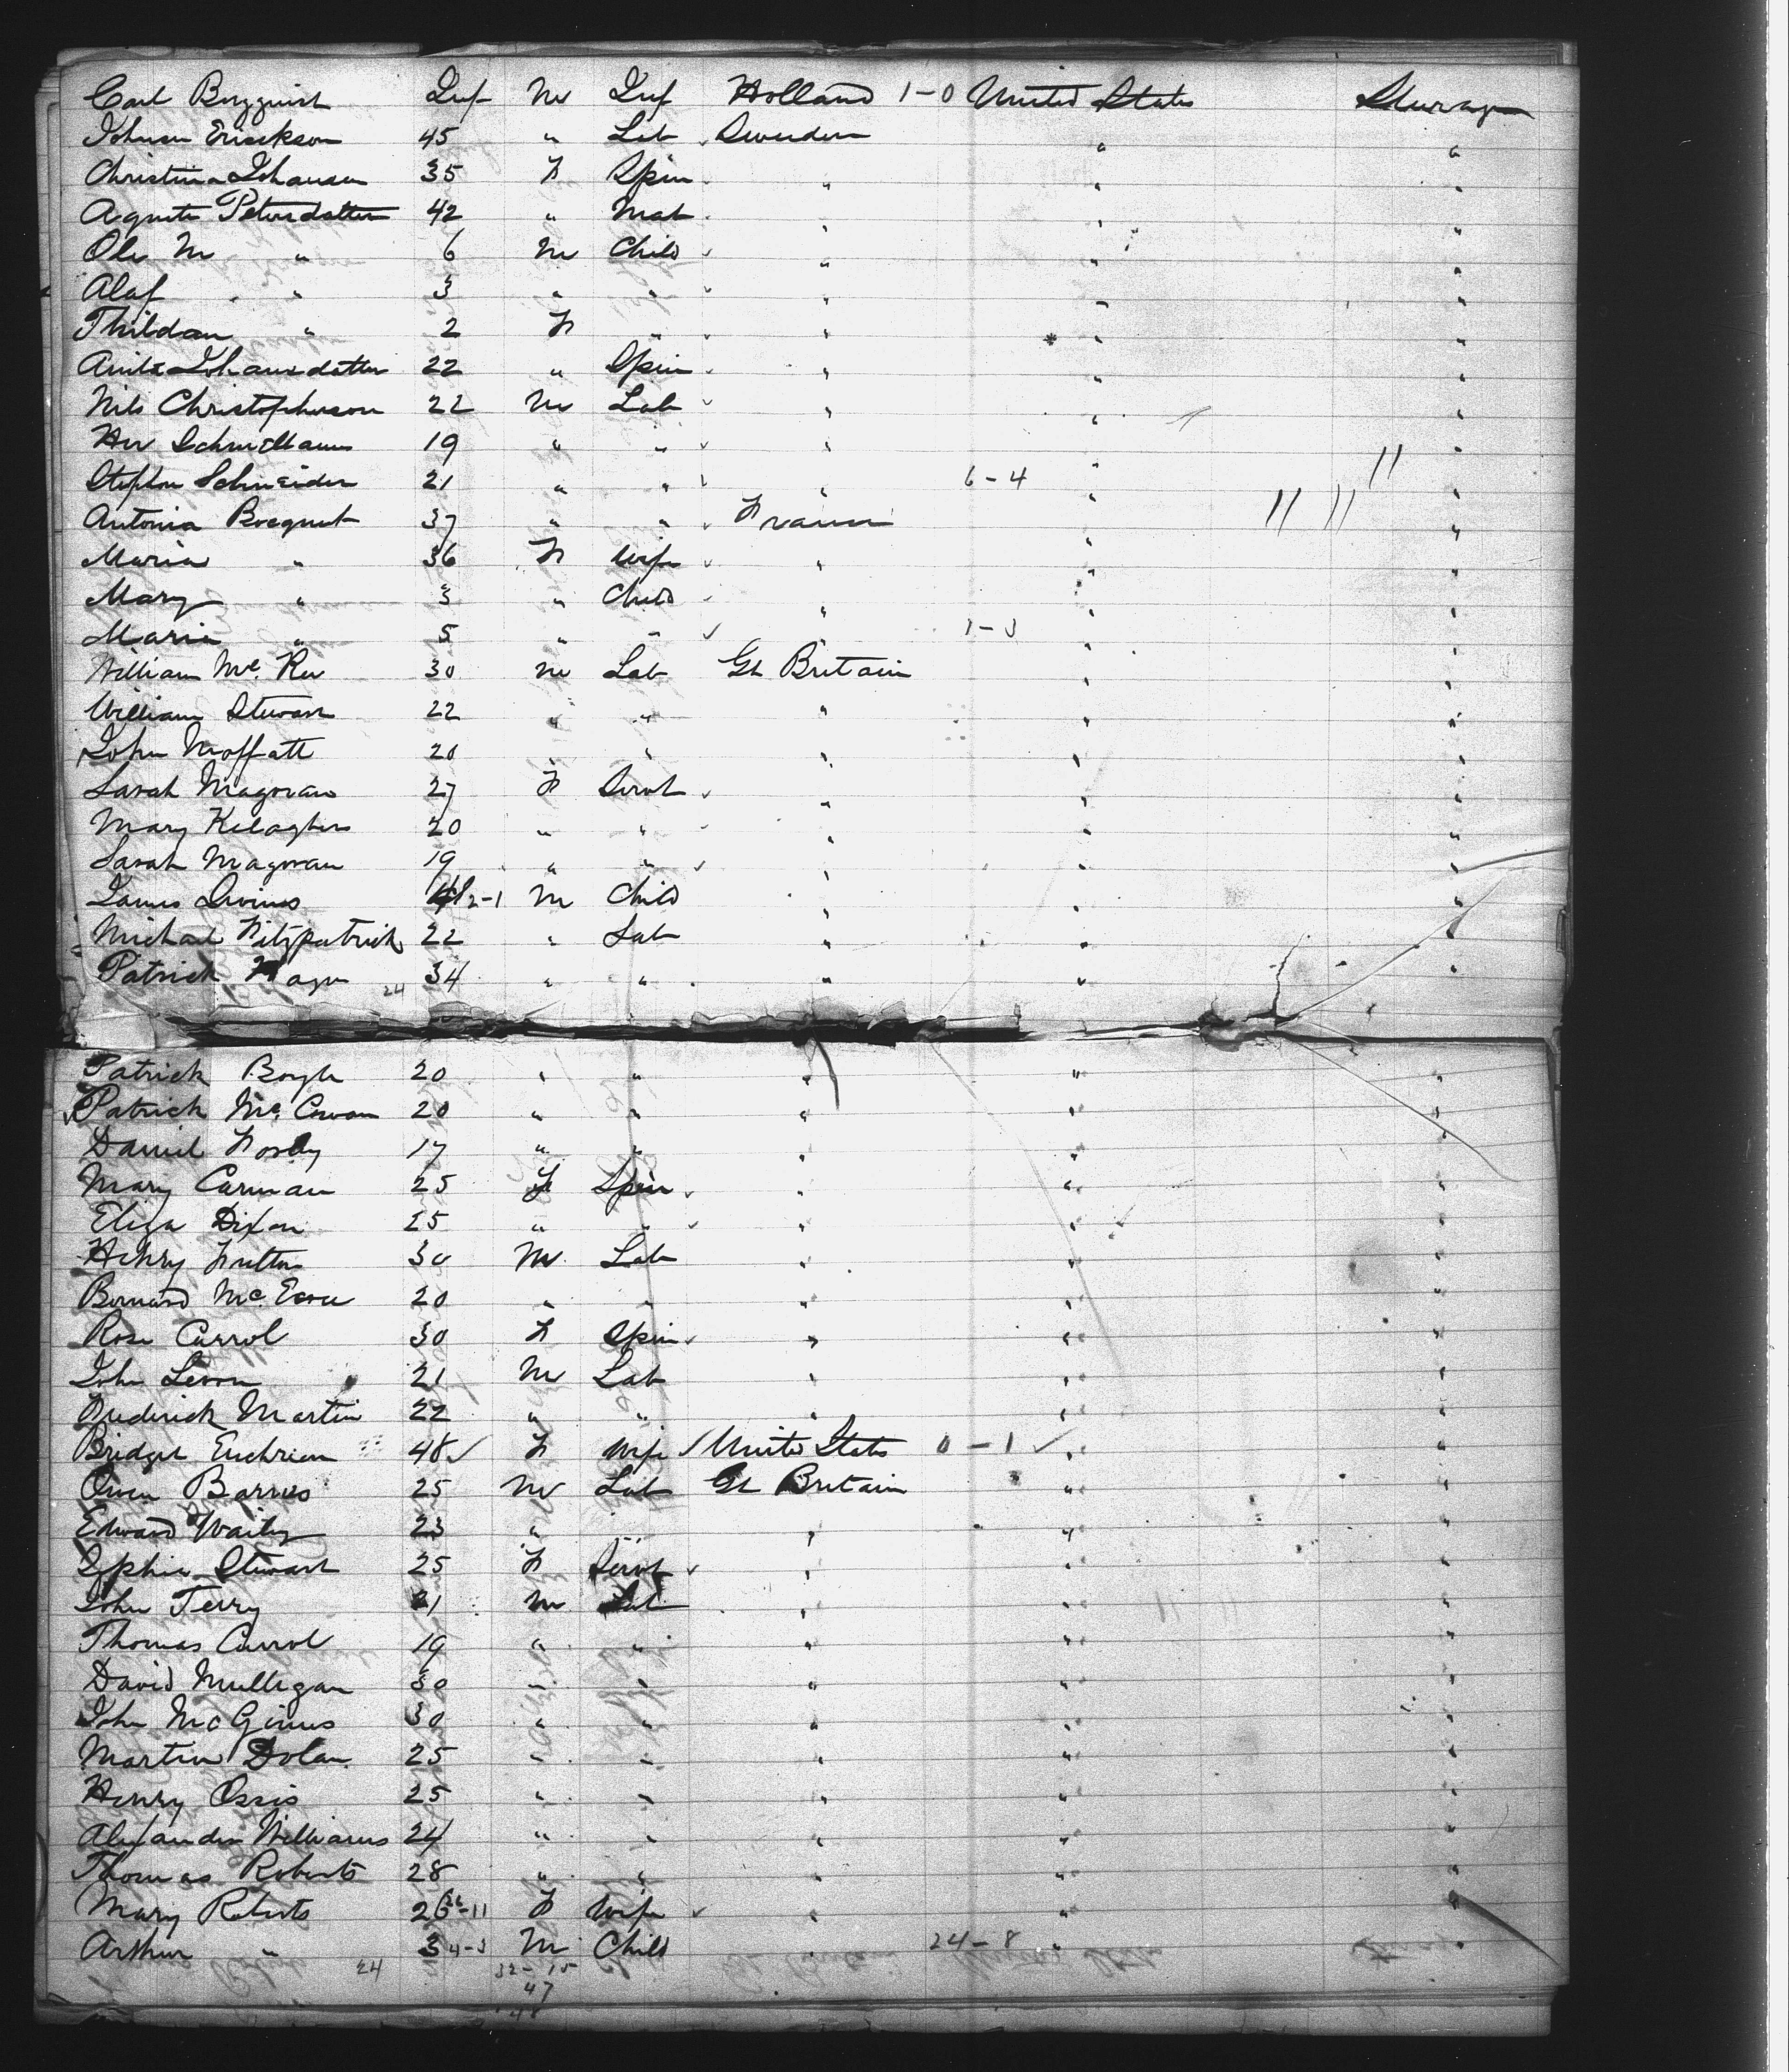 Carl Bergquist Inf M Inf Holland 1-0 United States Steerage
Johnson Erickson 45 " Lab Sweden " "
Christina Johansen 35 F Spin " " "
Agneta Petersdatter 42 " Mat " " "
Ole M " 6 M Child " " "
Alaf " 3 " " " " "
Thildan " 2 F " " " "
Anita Johansdatter 22 " Spin " " "
Nils Christopherson 22 M Lab " " "
19 " " " " "
Stephen Schneider 21 " " " 6-4 " "
Antonia Bocquet 37 " " France " "
Maria " 36 F Wife " " "
Mary " 3 " Child " " "
Maria " 5 " " " 1-3 " "
William Mc. Kee 30 M Lab Gt Britain " "
William Stewart 22 " " " " "
John Moffatt 20 " " " " "
Sarah Magovan 27 F Servt " " "
Mary Kelaghen 20 " " " " "
Sarah Magovan 19 " " " " "
James Divines 2-1 M Child " " "
Michael Fitzpatrick 22 " Lab " " "
Patrick 34 " " " " "
24
Patrick Boyle 20 " " " " "
Patrick Mc. Cowan 20 " " " " "
Daniel 17 " " " " "
Mary Carman 25 F Spin " " "
Eliza Dixon 25 " " " " "
Henry Fulton 30 M Lab " " "
Bernard Mc. 20 " " " " "
Rose Carrol 30 F Spin " " "
John 21 M Lab " " "
Frederick Martin 22 " " " " "
Bridget 48 F Wife United States 0-1 " "
Owen Barnes 25 M Lab Gt Britain " "
Edward 23 " " " " "
Sophia Stewart 25 F Servt " " "
John Terry 21 M Lab " " "
Thomas Carrol 19 " " " " "
David Mulligan 30 " " " " "
John McGinnes 30 " " " " "
Martin Dolan 25 " " " " "
Henry Ossis 25 " " " " "
Alexander Williams 24 " " " " "
Thomas Roberts 28 " " " " "
Mary Roberts 26 -11 F Wife " " "
Arthur " 3 4-3 M Child " 24-8 " "
24 32-15
47
48